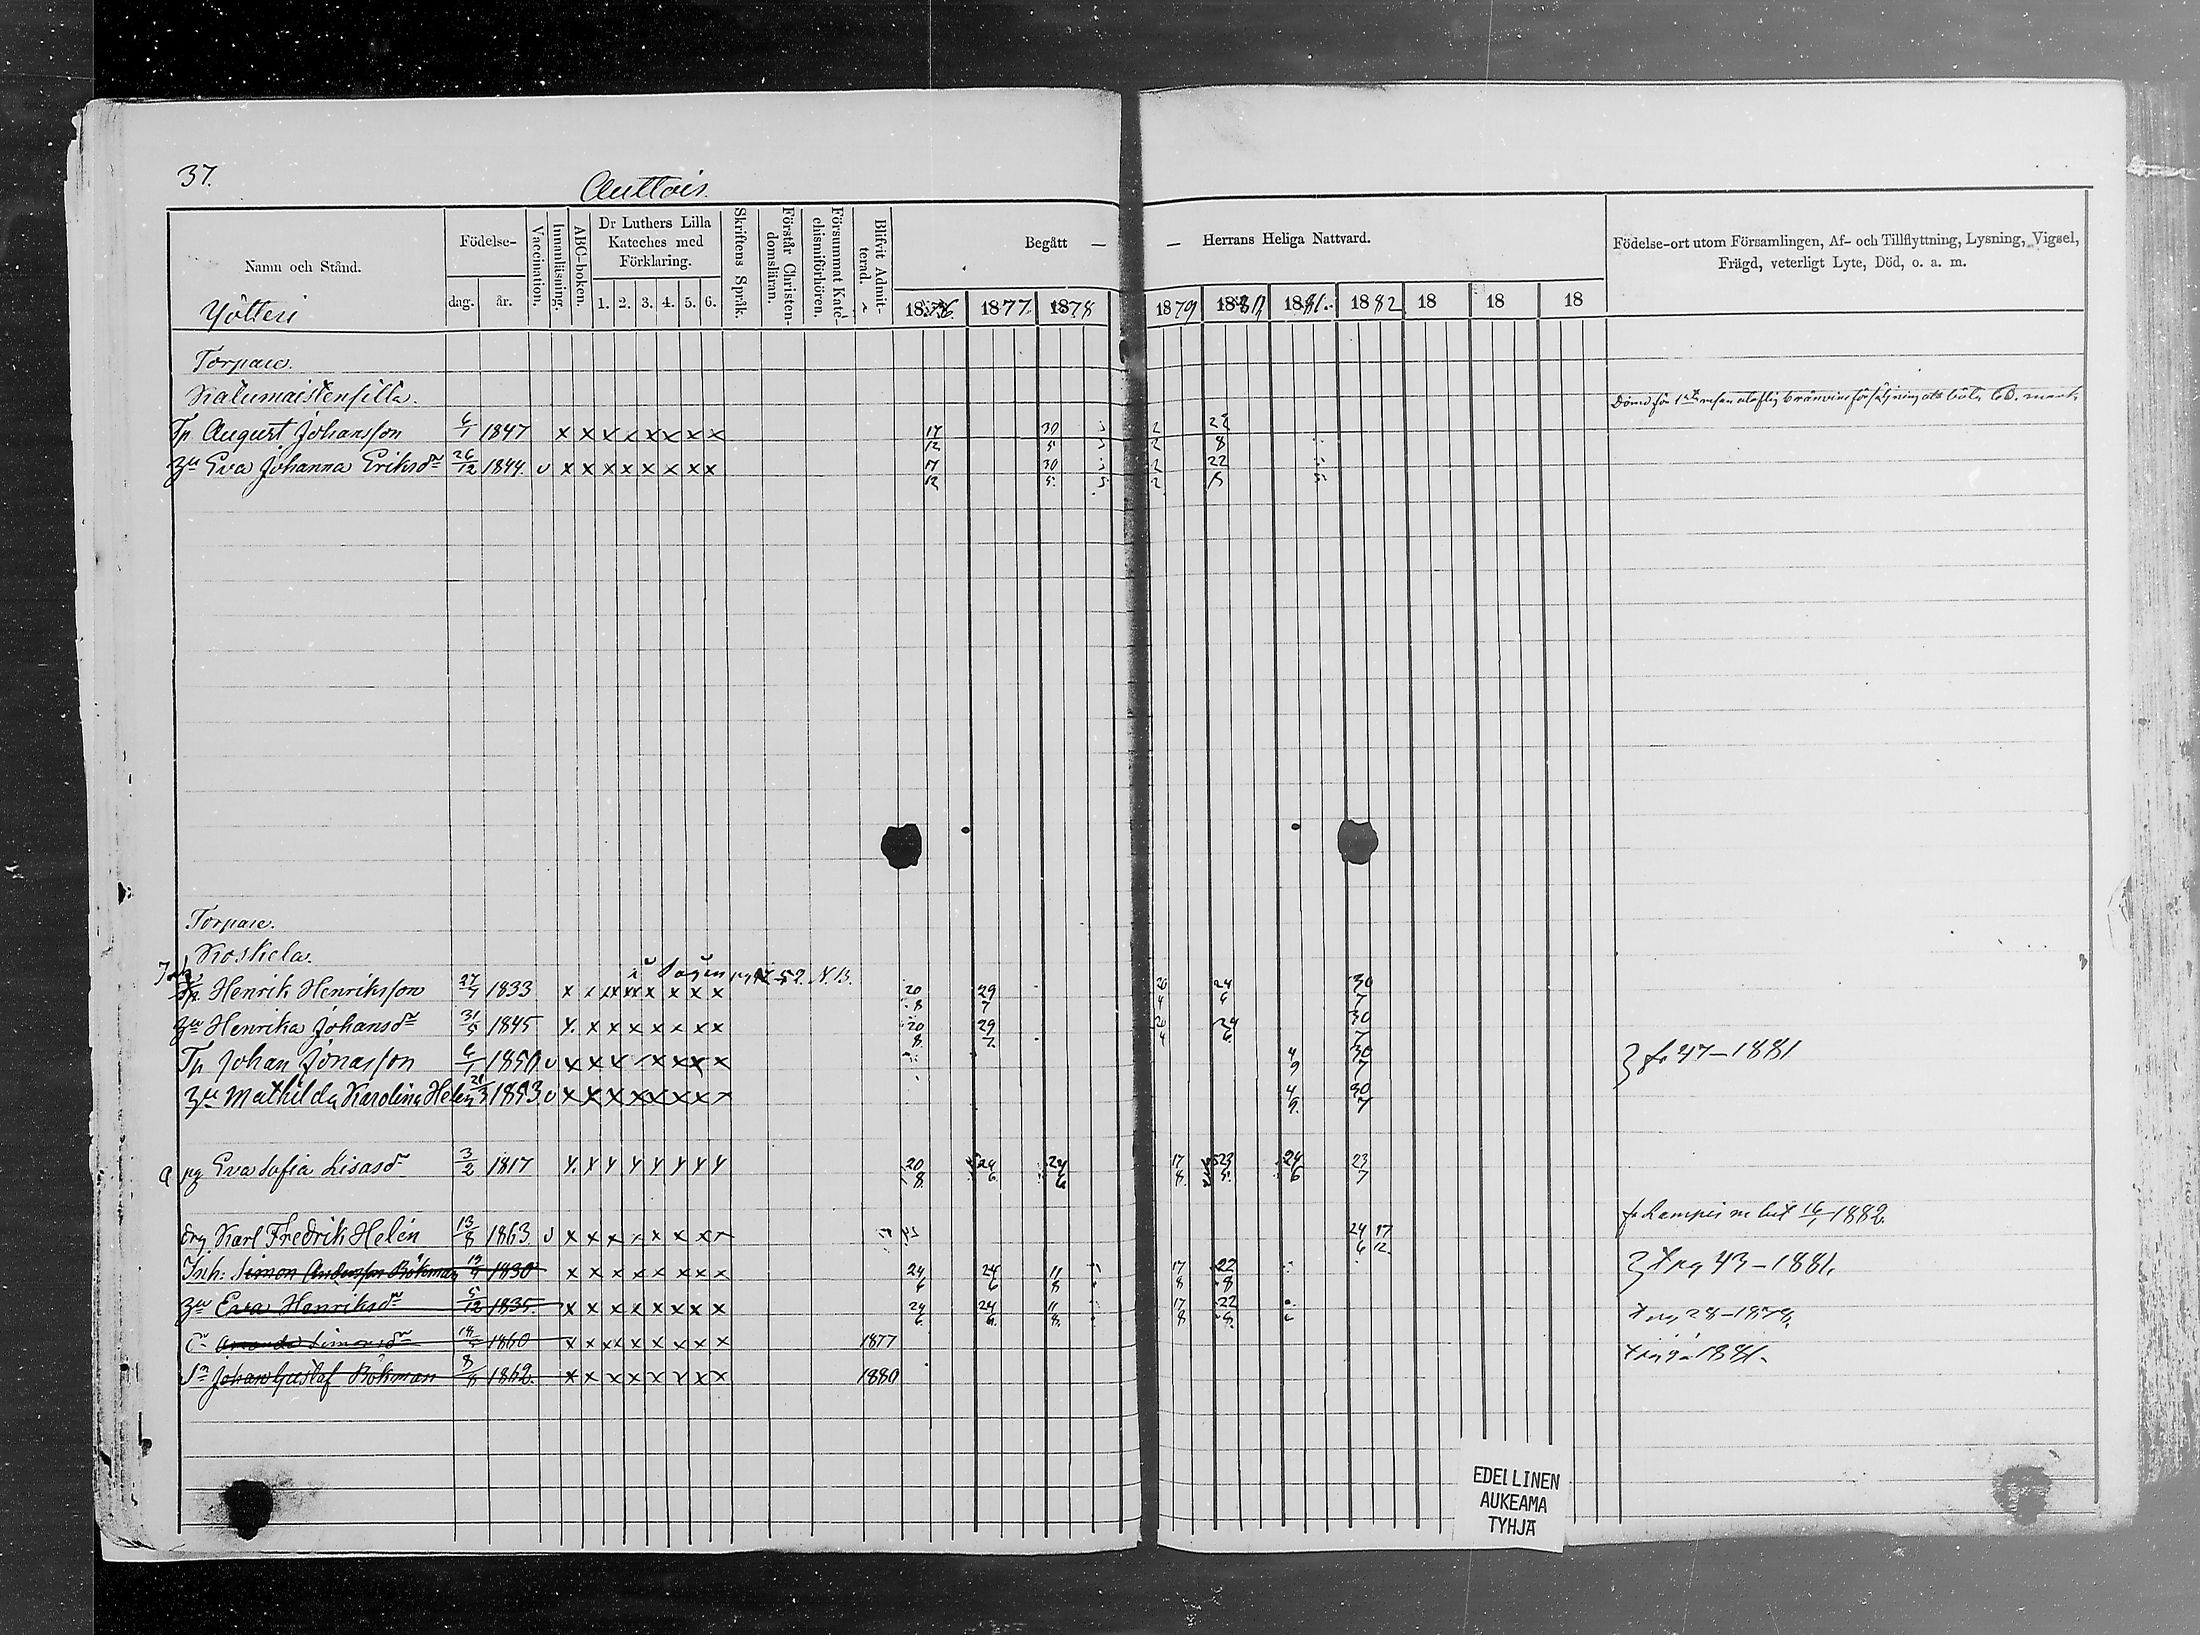 37.
Auttois.
Namn och Stånd.
Födelse-
dag.
år.
Vaccination.
Innanläsning.
ABC-boken.
Dr Luthers Lilla
Kateches med
Förklaring.
1. 2. 3. 4. 5. 6.
Skriftens Språk.
Förstår Christen-
domsläran.
Försummat Kate-
chismiförhören.
Blifvit Admit-
terad.
Begått —
— Herrans Heliga Nattvard.
1876. 1877. 1878 1879 1880 1881. 1882 18 18 18
Födelse-ort utom Församlingen, Af- och Tillflyttning, Lysning, Vigsel,
Frägd, veterligt Lyte, Död, o. a. m.
Yötteri
Torpare.
Tp August Johansson 6/1 1847 x x x x x x x x 17/12 30/5 2/2 22/8
Hu Eva Johanna Eriksdr 26/12 1844 v x x x x x x x x 17/12 30/5 2/2 22
Torpare.
Koskela.
Henrik Henriksson 27/7 1833 x x x x x x x x 20/8 29/7 20/4 24/6 30/7
Hu Henrika Johansdr 31/5 1845 x x x x x x x x 20/8 29/7 20/4 24/6 30/7
Tp Johan Jonasson 6/1 1850 v x x x x x x x x 4/9 30/7 fr 47–1881
Hu Mathilda Karolina Helen 1853 v x x x x x x x x 4/9 30/7
Eva Sofia Lisasdr 3/2 1817 20/8 24/6 24/6 17/8 23/5 24/6 23/7
drg Karl Fredrik Helén 13/8 1863 v x x x x x x x x 24/6 17/12 fr Lampis m. bet 16/1 1882.
Inh: Simon Andersson Bökman 1830 x x x x x x x x 24/6 24/6 11/8 17/8 22/8 pg 43–1881.
Hu Eva Henriksdr 5/12 1835. x x x x x x x x 24/6 24/6 11/8 17/8 22/8
Dr Amanda Simonsdr 1860 x x x x x x x x 1877 pg 28–1878.
Sn Johan Gustaf Bökman 8/8 1862. x x x x x x x x 1880 1881.
EDELLINEN
AUKEAMA
TYHJÄ